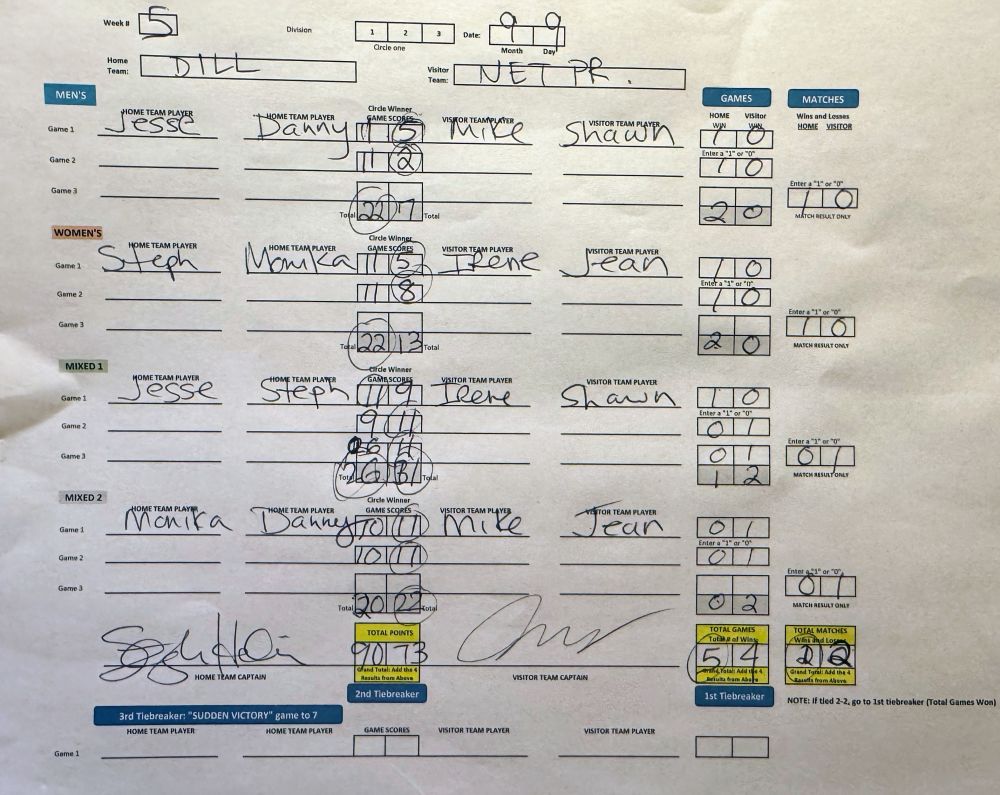 Week # 5 Division 1 2 3 Date: 9 9
Circle one Month Day
Home Team: DILL Visitor Team: NET PR.
MEN'S GAMES MATCHES
Circle Winner HOME WIN Visitor WIN Wins and Losses
HOME TEAM PLAYER HOME TEAM PLAYER GAME SCORES VISITOR TEAM PLAYER VISITOR TEAM PLAYER HOME VISITOR
Game 1 Jesse Danny 11 5 Mike Shawn 1 0
Enter a "1" or "0"
Game 2 11 2 1 0
Enter a "1" or "0"
Game 3 1 0
Total 22 7 Total 2 0 MATCH RESULT ONLY
WOMEN'S
Circle Winner
HOME TEAM PLAYER HOME TEAM PLAYER GAME SCORES VISITOR TEAM PLAYER VISITOR TEAM PLAYER
Game 1 Steph Monika 11 5 Irene Jean 1 0
Enter a "1" or "0"
Game 2 11 8 1 0
Enter a "1" or "0"
Game 3 1 0
Total 22 13 Total 2 0 MATCH RESULT ONLY
MIXED 1
Circle Winner
HOME TEAM PLAYER HOME TEAM PLAYER GAME SCORES VISITOR TEAM PLAYER VISITOR TEAM PLAYER
Game 1 Jesse Steph 11 9 Irene Shawn 1 0
Enter a "1" or "0"
Game 2 9 11 0 1
Enter a "1" or "0"
Game 3 6 11 0 1 0 1
Total 26 31 Total 1 2 MATCH RESULT ONLY
MIXED 2
Circle Winner
HOME TEAM PLAYER HOME TEAM PLAYER GAME SCORES VISITOR TEAM PLAYER VISITOR TEAM PLAYER
Game 1 Monika Danny 10 11 Mike Jean 0 1
Enter a "1" or "0"
Game 2 10 11 0 1
Enter a "1" or "0"
Game 3 0 1
Total 20 22 Total 0 2 MATCH RESULT ONLY
TOTAL POINTS TOTAL GAMES TOTAL MATCHES
Total # of Wins Wins and Losses
90 73 5 4 2 2
Grand Total: Add the 4 Results from Above Grand Total: Add the 4 Results from Above Grand Total: Add the 4 Results from Above
HOME TEAM CAPTAIN VISITOR TEAM CAPTAIN
2nd Tiebreaker 1st Tiebreaker NOTE: If tied 2-2, go to 1st tiebreaker (Total Games Won)
3rd Tiebreaker: "SUDDEN VICTORY" game to 7
HOME TEAM PLAYER HOME TEAM PLAYER GAME SCORES VISITOR TEAM PLAYER VISITOR TEAM PLAYER
Game 1